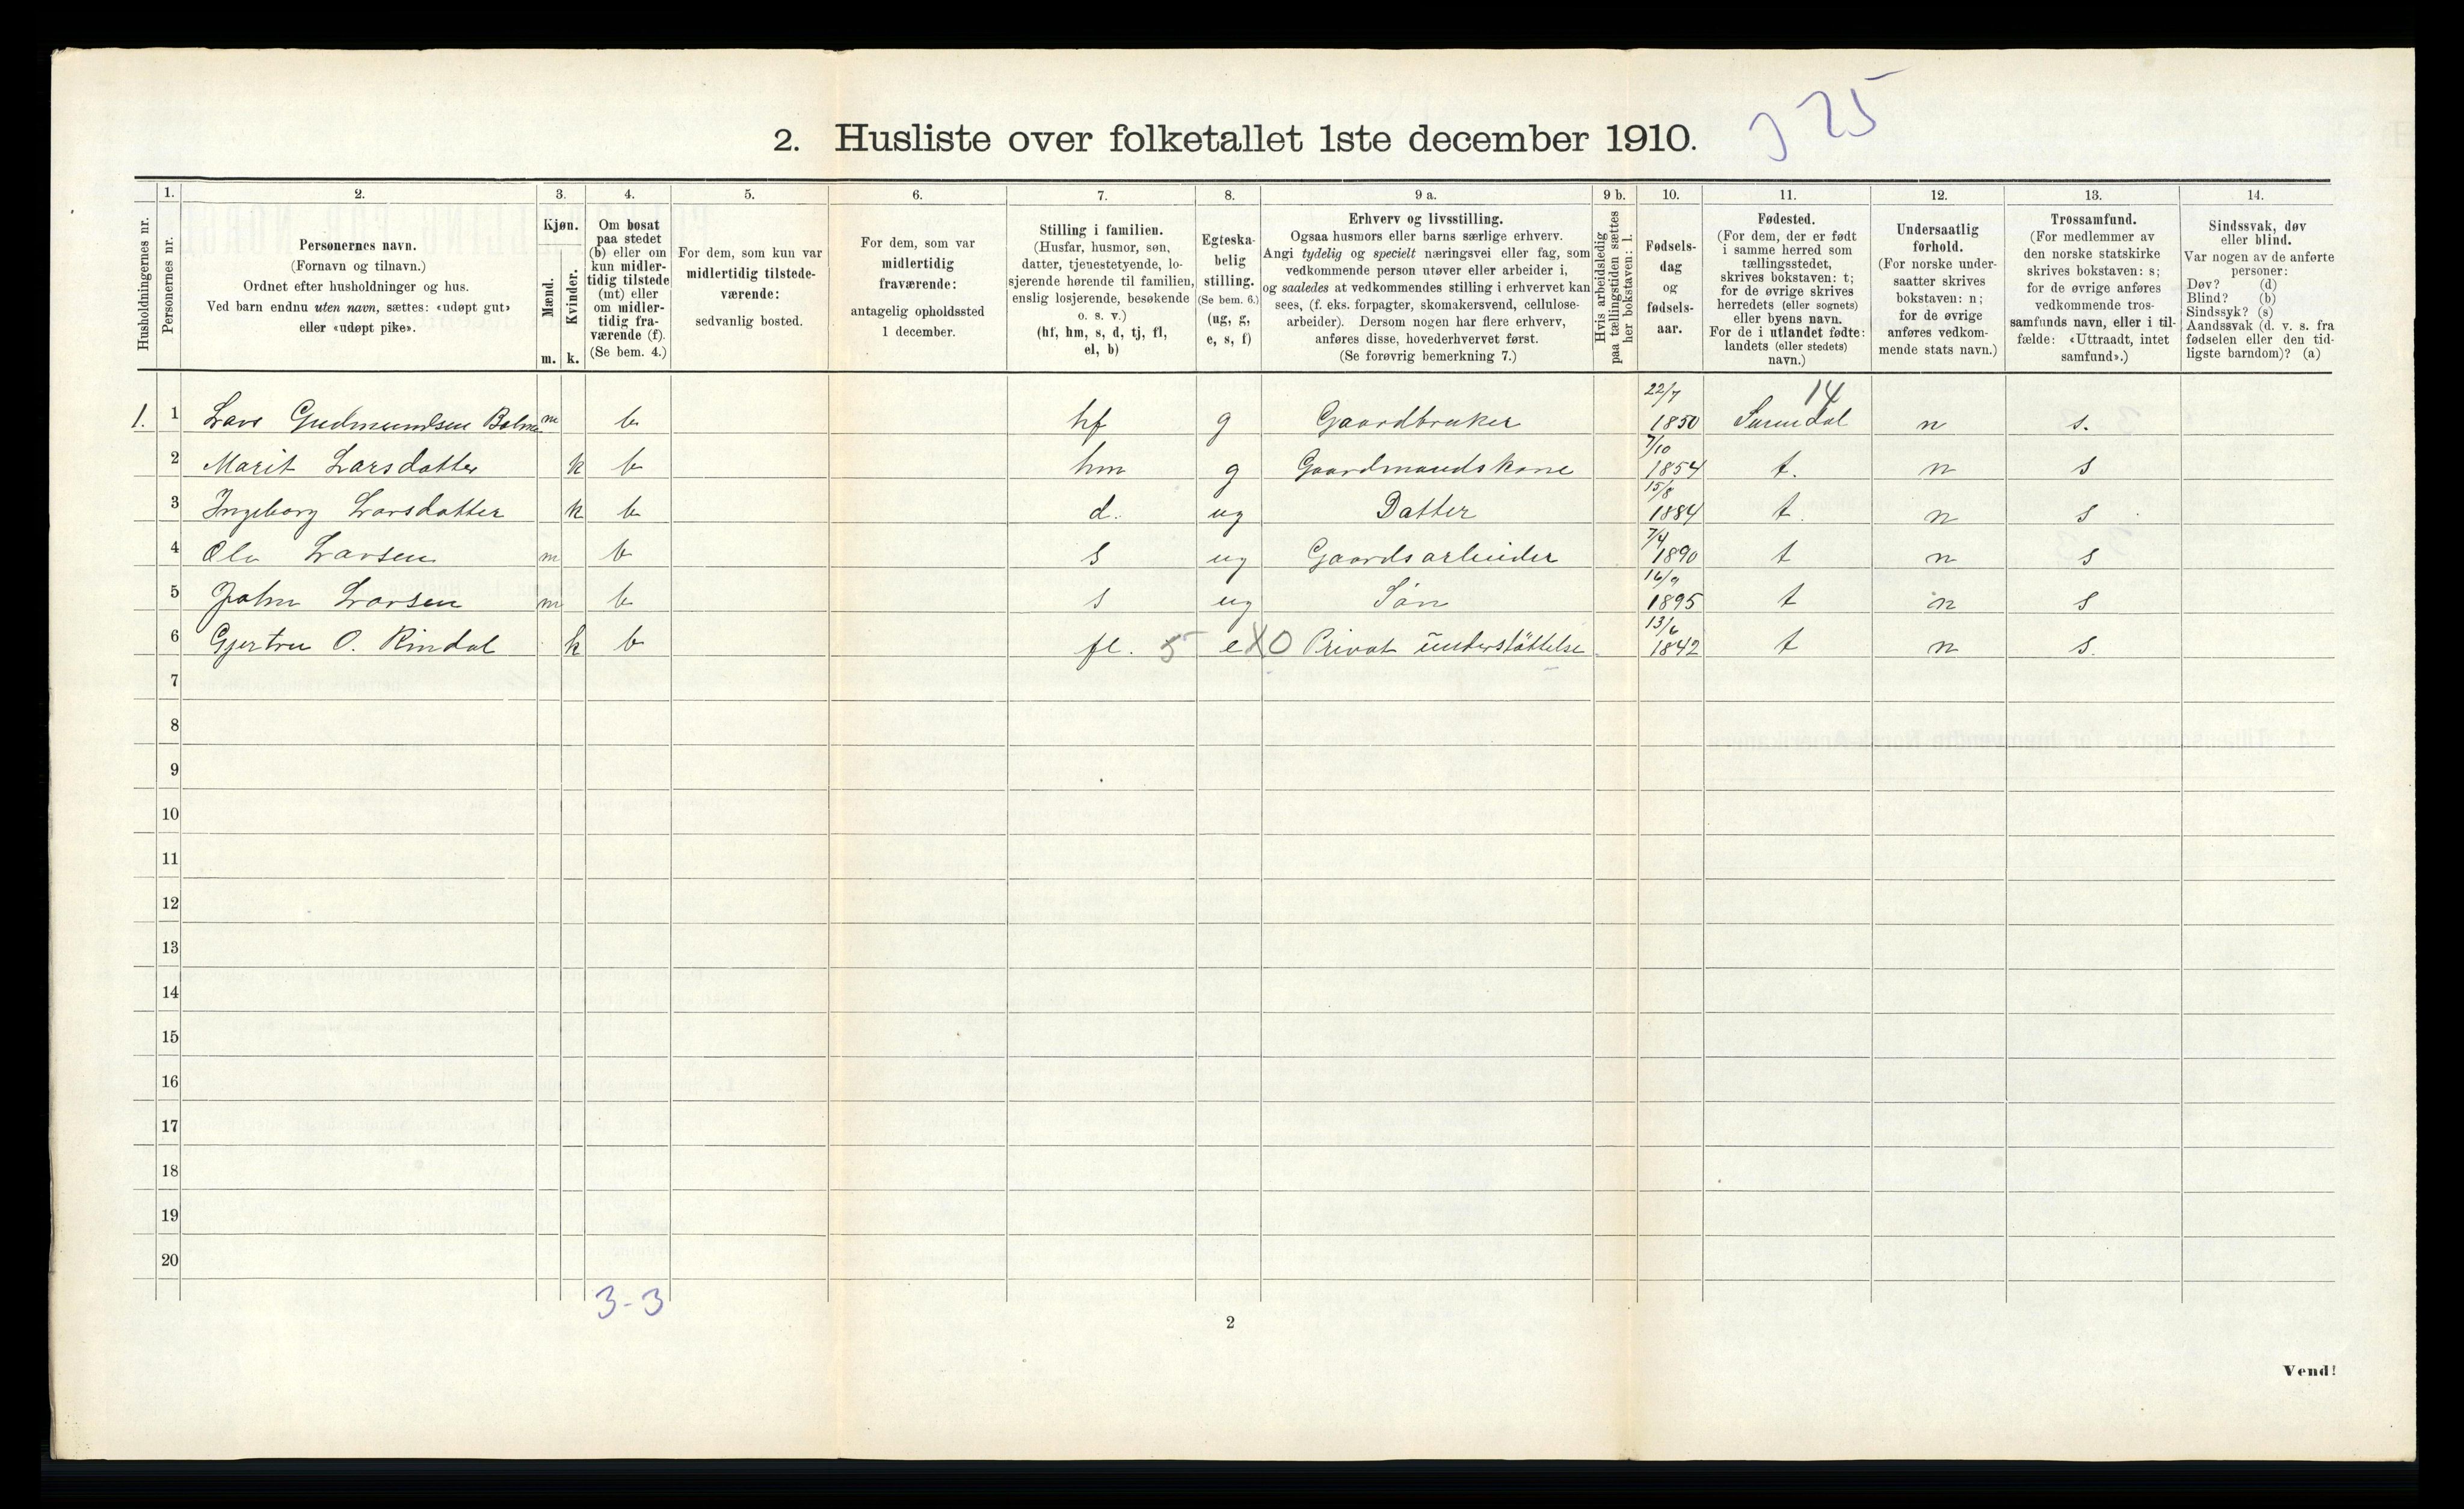 2. Husliste over folketallet 1ste december 1910.
25
Husholdningernes nr.
1.
Personernes nr.
2.
Personernes navn.
(Fornavn og tilnavn.)
Ordnet efter husholdninger og hus.
Ved barn endnu uten navn, sættes: «udøpt gut»
eller «udøpt pike».
3.
Kjøn.
Mænd.
Kvinder.
m. k.
4.
Om bosat
paa stedet
(b) eller om
kun midler-
tidig tilstede
(mt) eller
om midler-
tidig fra-
værende (f).
(Se bem. 4.)
5.
For dem, som kun var
midlertidig tilstede-
værende:
sedvanlig bosted.
6.
For dem, som var
midlertidig
fraværende:
antagelig opholdssted
1 december.
7.
Stilling i familien.
(Husfar, husmor, søn,
datter, tjenestetyende, lo-
sjerende hørende til familien,
enslig losjerende, besøkende
o. s. v.)
(hf, hm, s, d, tj, fl,
el, b)
8.
Egteska-
belig
stilling.
(Se bem. 6.)
(ug, g,
e, s, f)
9 a.
Erhverv og livsstilling.
Ogsaa husmors eller barns særlige erhverv.
Angi tydelig og specielt næringsvei eller fag, som
vedkommende person utøver eller arbeider i,
og saaledes at vedkommendes stilling i erhvervet kan
sees, (f. eks. forpagter, skomakersvend, cellulose-
arbeider). Dersom nogen har flere erhverv,
anføres disse, hovederhvervet først.
(Se forøvrig bemerkning 7.)
9 b.
Hvis arbeidsledig
paa tællingstiden sættes
her bokstaven: l.
10.
Fødsels-
dag
og
fødsels-
aar.
11.
Fødested.
(For dem, der er født
i samme herred som
tællingsstedet,
skrives bokstaven: t;
for de øvrige skrives
herredets (eller sognets)
eller byens navn.
For de i utlandet fødte:
landets (eller stedets)
navn.)
12.
Undersaatlig
forhold.
(For norske under-
saatter skrives
bokstaven: n;
for de øvrige
anføres vedkom-
mende stats navn.)
13.
Trossamfund.
(For medlemmer av
den norske statskirke
skrives bokstaven: s;
for de øvrige anføres
vedkommende tros-
samfunds navn, eller i til-
fælde: «Uttraadt, intet
samfund».)
14.
Sindssvak, døv
eller blind.
Var nogen av de anførte
personer:
Døv? (d)
Blind? (b)
Sindssyk? (s)
Aandssvak (d. v. s. fra
fødselen eller den tid-
ligste barndom)? (a)
1. 1 Lars Gudmundsen m b hf g Gaardbruker 22/7 1850 14 Surendal n s.
2 Marit Larsdatter k b hm g Gaardmandskone 7/10 1854 t. n s
3 Ingeborg Larsdatter k b d. ug Datter 15/8 1884 t. n s
4 Ola Larsen m b s ug Gaardsarbeider 7/4 1890 t n s
5 John Larsen m b s ug Søn 16/9 1895 t n s
6 Gjertru O. Rindal k b fl. 5 e X0 Privat understøttelse 13/6 1842 t n s.
7
8
9
10
11
12
13
14
15
16
17
18
19
20
3-3
2
Vend!